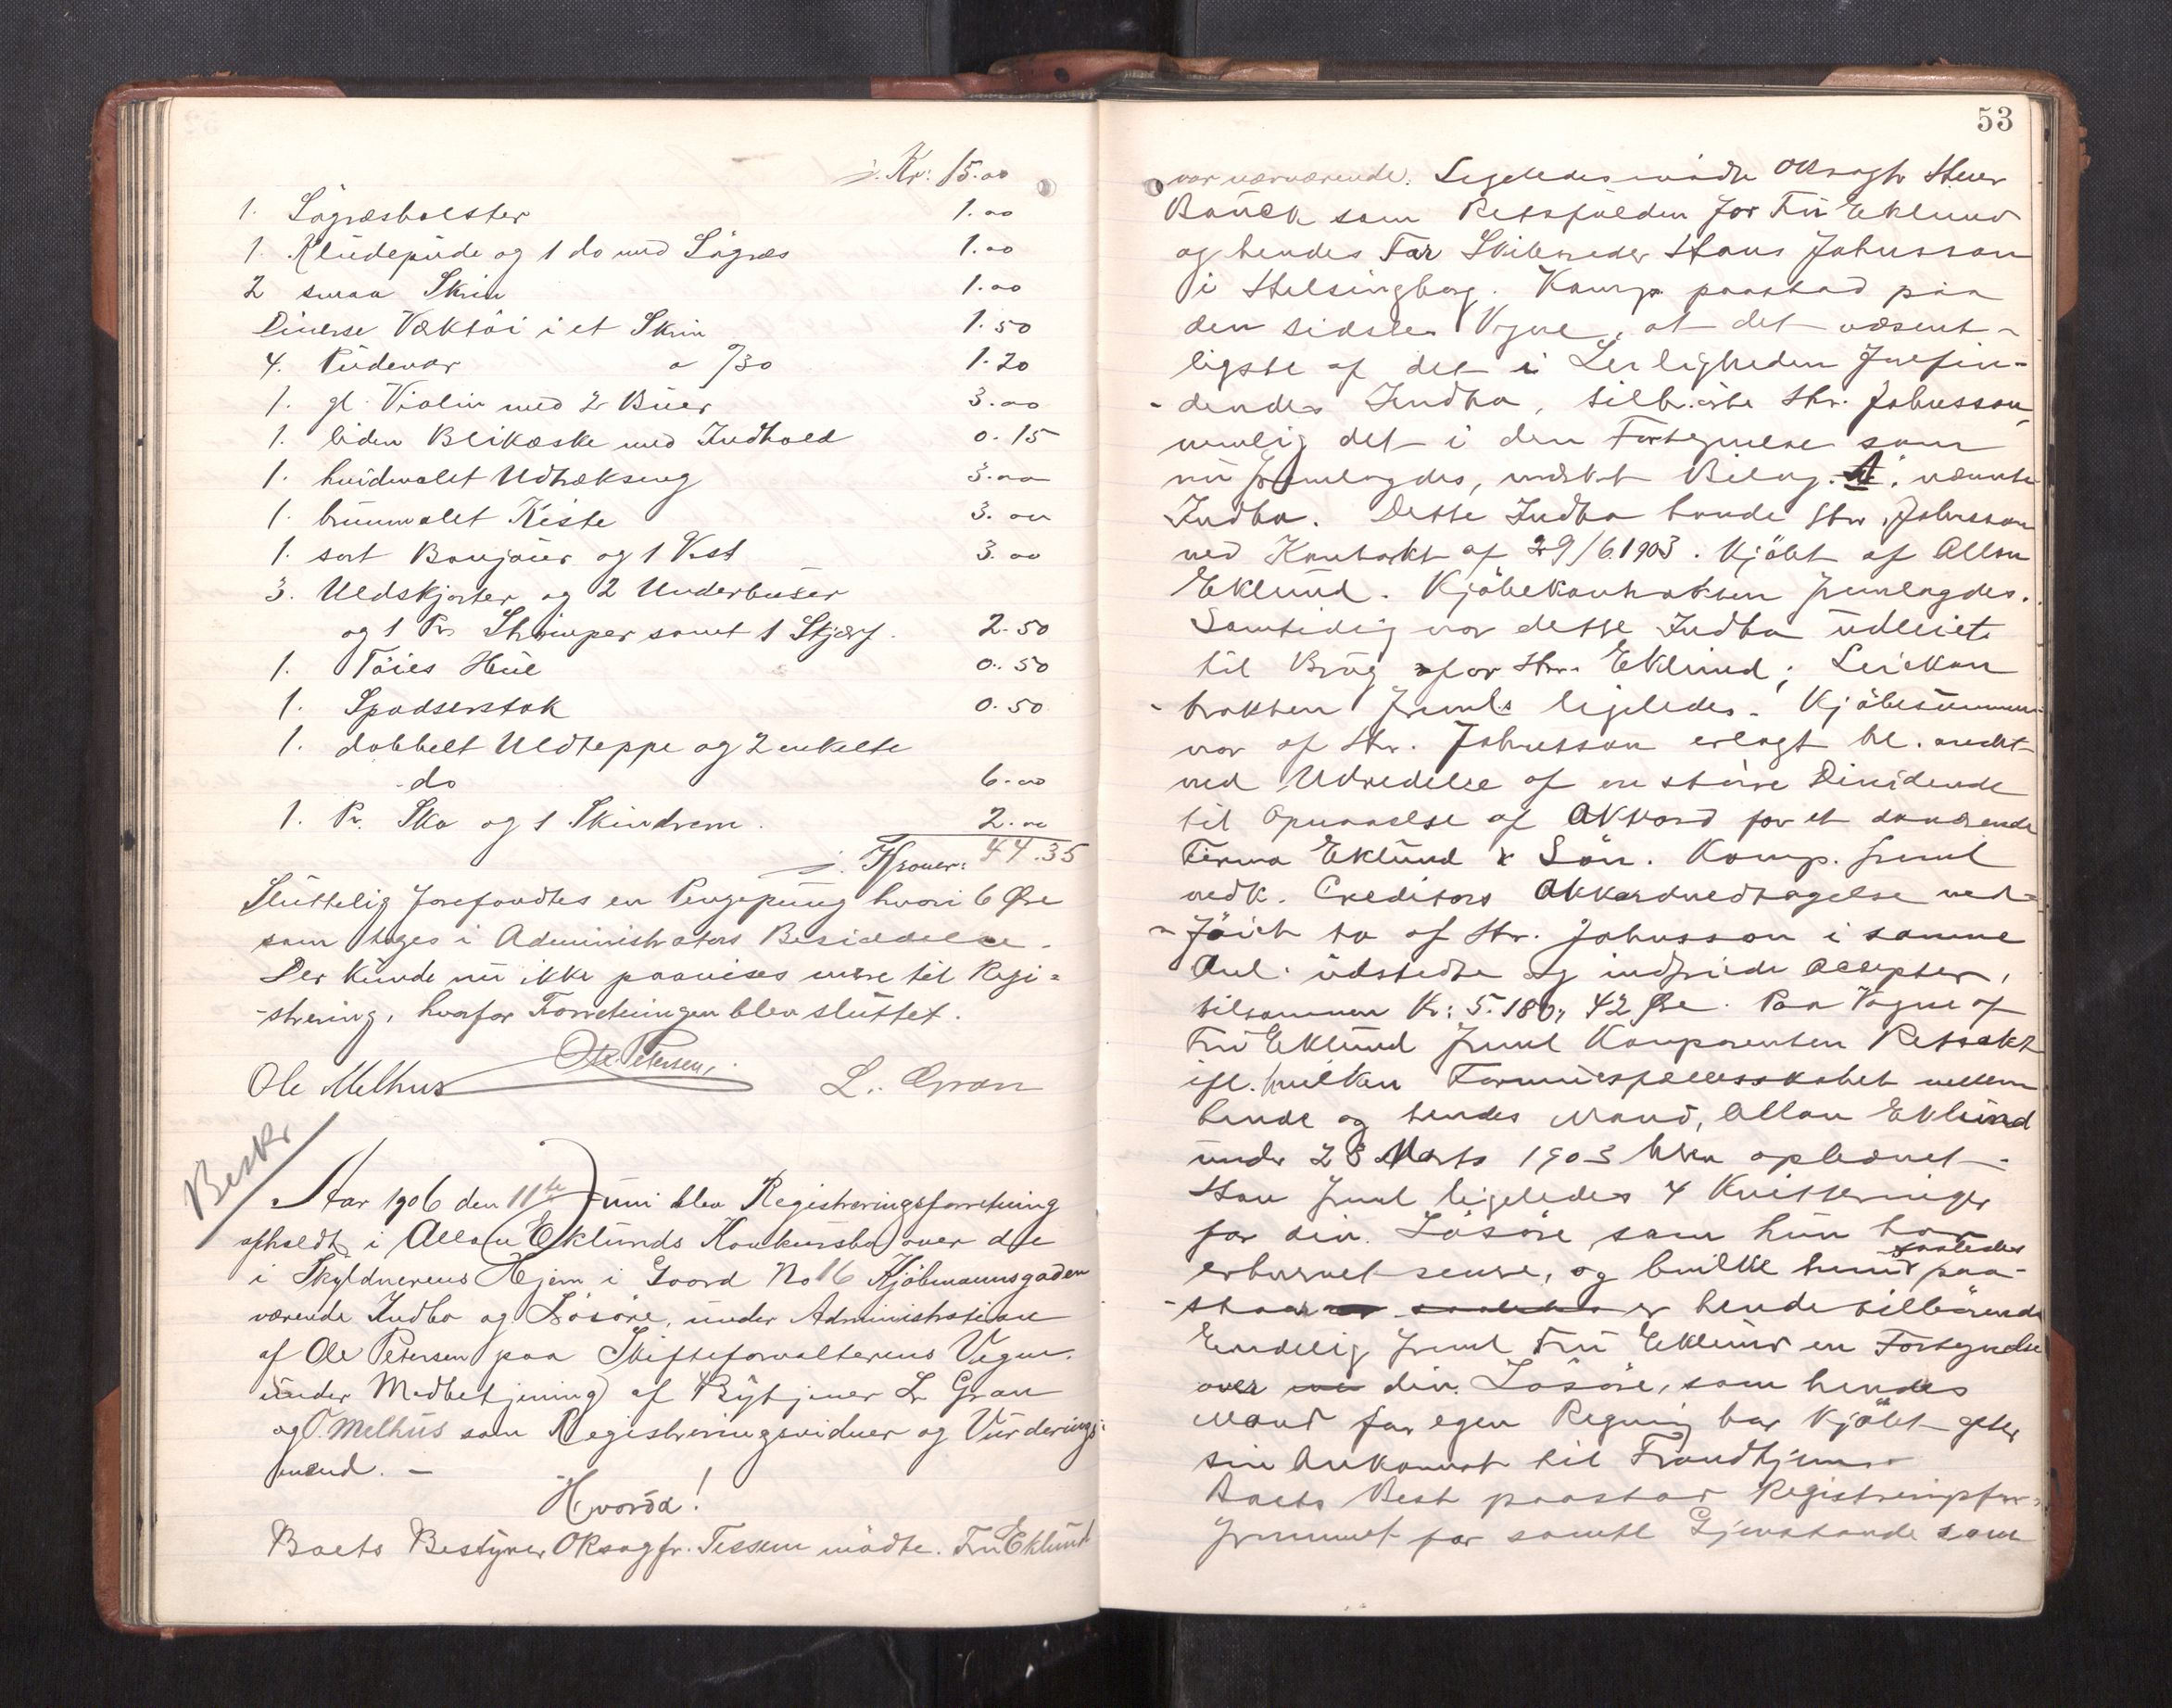 j. Kr: 15.00
1. Sögræsbolster 1.00
1. Kludepude og 1 do med Sögræs 1.00
2 smaa Skrin 1.00
Diverse Væktöi i et Skrin 1.50
4. Pudevar a %30 1.20
1. gl. Violin med 2 Buer 3.00
1. liden Blikæske med Indhold 0.15
1. hvidmalet Udtrækseng 3.00
1. brunmalet Kiste 3.00
1. sort Bonjour og 1 Vest 3.00
3. Uldskjorter og 2 Underbuser
og 1 Pr Strömper samt 1 Skjærf. 2.50
1. Töies Hue 0.50
1. Spadserstok 0.50
1. dobbelt Uldteppe og 2 enkelte
do 6.00
1. Pr. Sko og 1 Skindrem. 2.00
j. Kroner: 44.35
Sluttelig forefandtes en Pengepung hvori 6 Øre
som toges i Administrators Besiddelse.
Der kunde nu ikke paavises mere til Regi=
-strering, hvorfor Forretningen blev sluttet.
Ole Petersen,
Ole Melhus L. Gran
Beskr
Aar 1906 den 11te Juni blev Registreringsforretning
afholdt i Allan Eklunds Konkursbo over det
i Skyldnerens Hjem i Gaard No 16 Kjöbmannsgaden
værende Indbo og Lösöre, under Administration
af Ole Petersen paa Skifteforvalterens Vegne
under Medbetjening af Bytjener L. Gran
og O. Melhus som Registreringsvidner og Vurderings-
mænd. –
Hvorda!
Boets Bestyrer ORsagfr. Tessem mødte. Fru Eklund
53
var nærværende. Ligeledes mødte ORsagfr Herr
Bauck som Retsfuldm for Fru Eklund
og hendes Far Skibsreder Hans Johnsson
i Helsingborg. Komp. paastod paa
den sidstes Vegne, at det væsent-
ligste af det i Leiligheden forefin-
- dendes Indbo, tilhørte Hr. Johnsson,
nemlig det i den Fortegnelse som
nu fremlagdes, mærket Bilag A, nævnte
Indbo. Dette Indbo havde Hr. Johnsson
ved Kontrakt af 29/6 1903. kjöbt af Allan
Eklund. Kjöbekontrakten fremlagdes.
Samtidig var dette Indbo udleiet
til Brug for Hr. Eklund; Leiekon
- trakten freml. ligeledes. Kjöbesummen
var af Hr. Johnsson erlagt bl. andet
ved Udredelse af en större Dividende
til Opnaaelse af Akkord for et daværende
Firma Eklund & Sön. Komp. freml
vedk. Creditors Akkordvedtagelse ved-
- föiet to af Hr. Johnsson i samme
Anl. udstedte og indfriede Accepter,
tilsammen Kr: 5.180, 42 Øre. Paa Vegne af
Fru Eklund freml Komparenten Retsakt
ifl. hvilken Formuesfællesskabet mellem
hende og hendes Mand, Allan Eklund
under 28 Marts 1903 blev ophævet.
Han freml ligeledes 4 Kvitteringer
for div. Lösöre som hun har
erhvervet senere, og hvilke hun saaledes paa-
- staar er hende tilhörende
Endelig freml Fru Eklund en Fortegnelse
over div. Lösöre, som hendes
Mand for egen Regning har kjöbt efter
sin Ankomst til Trondhjem.
Boets Best paastod Registreringsfor-
fremmet for samtl Gjenstande som